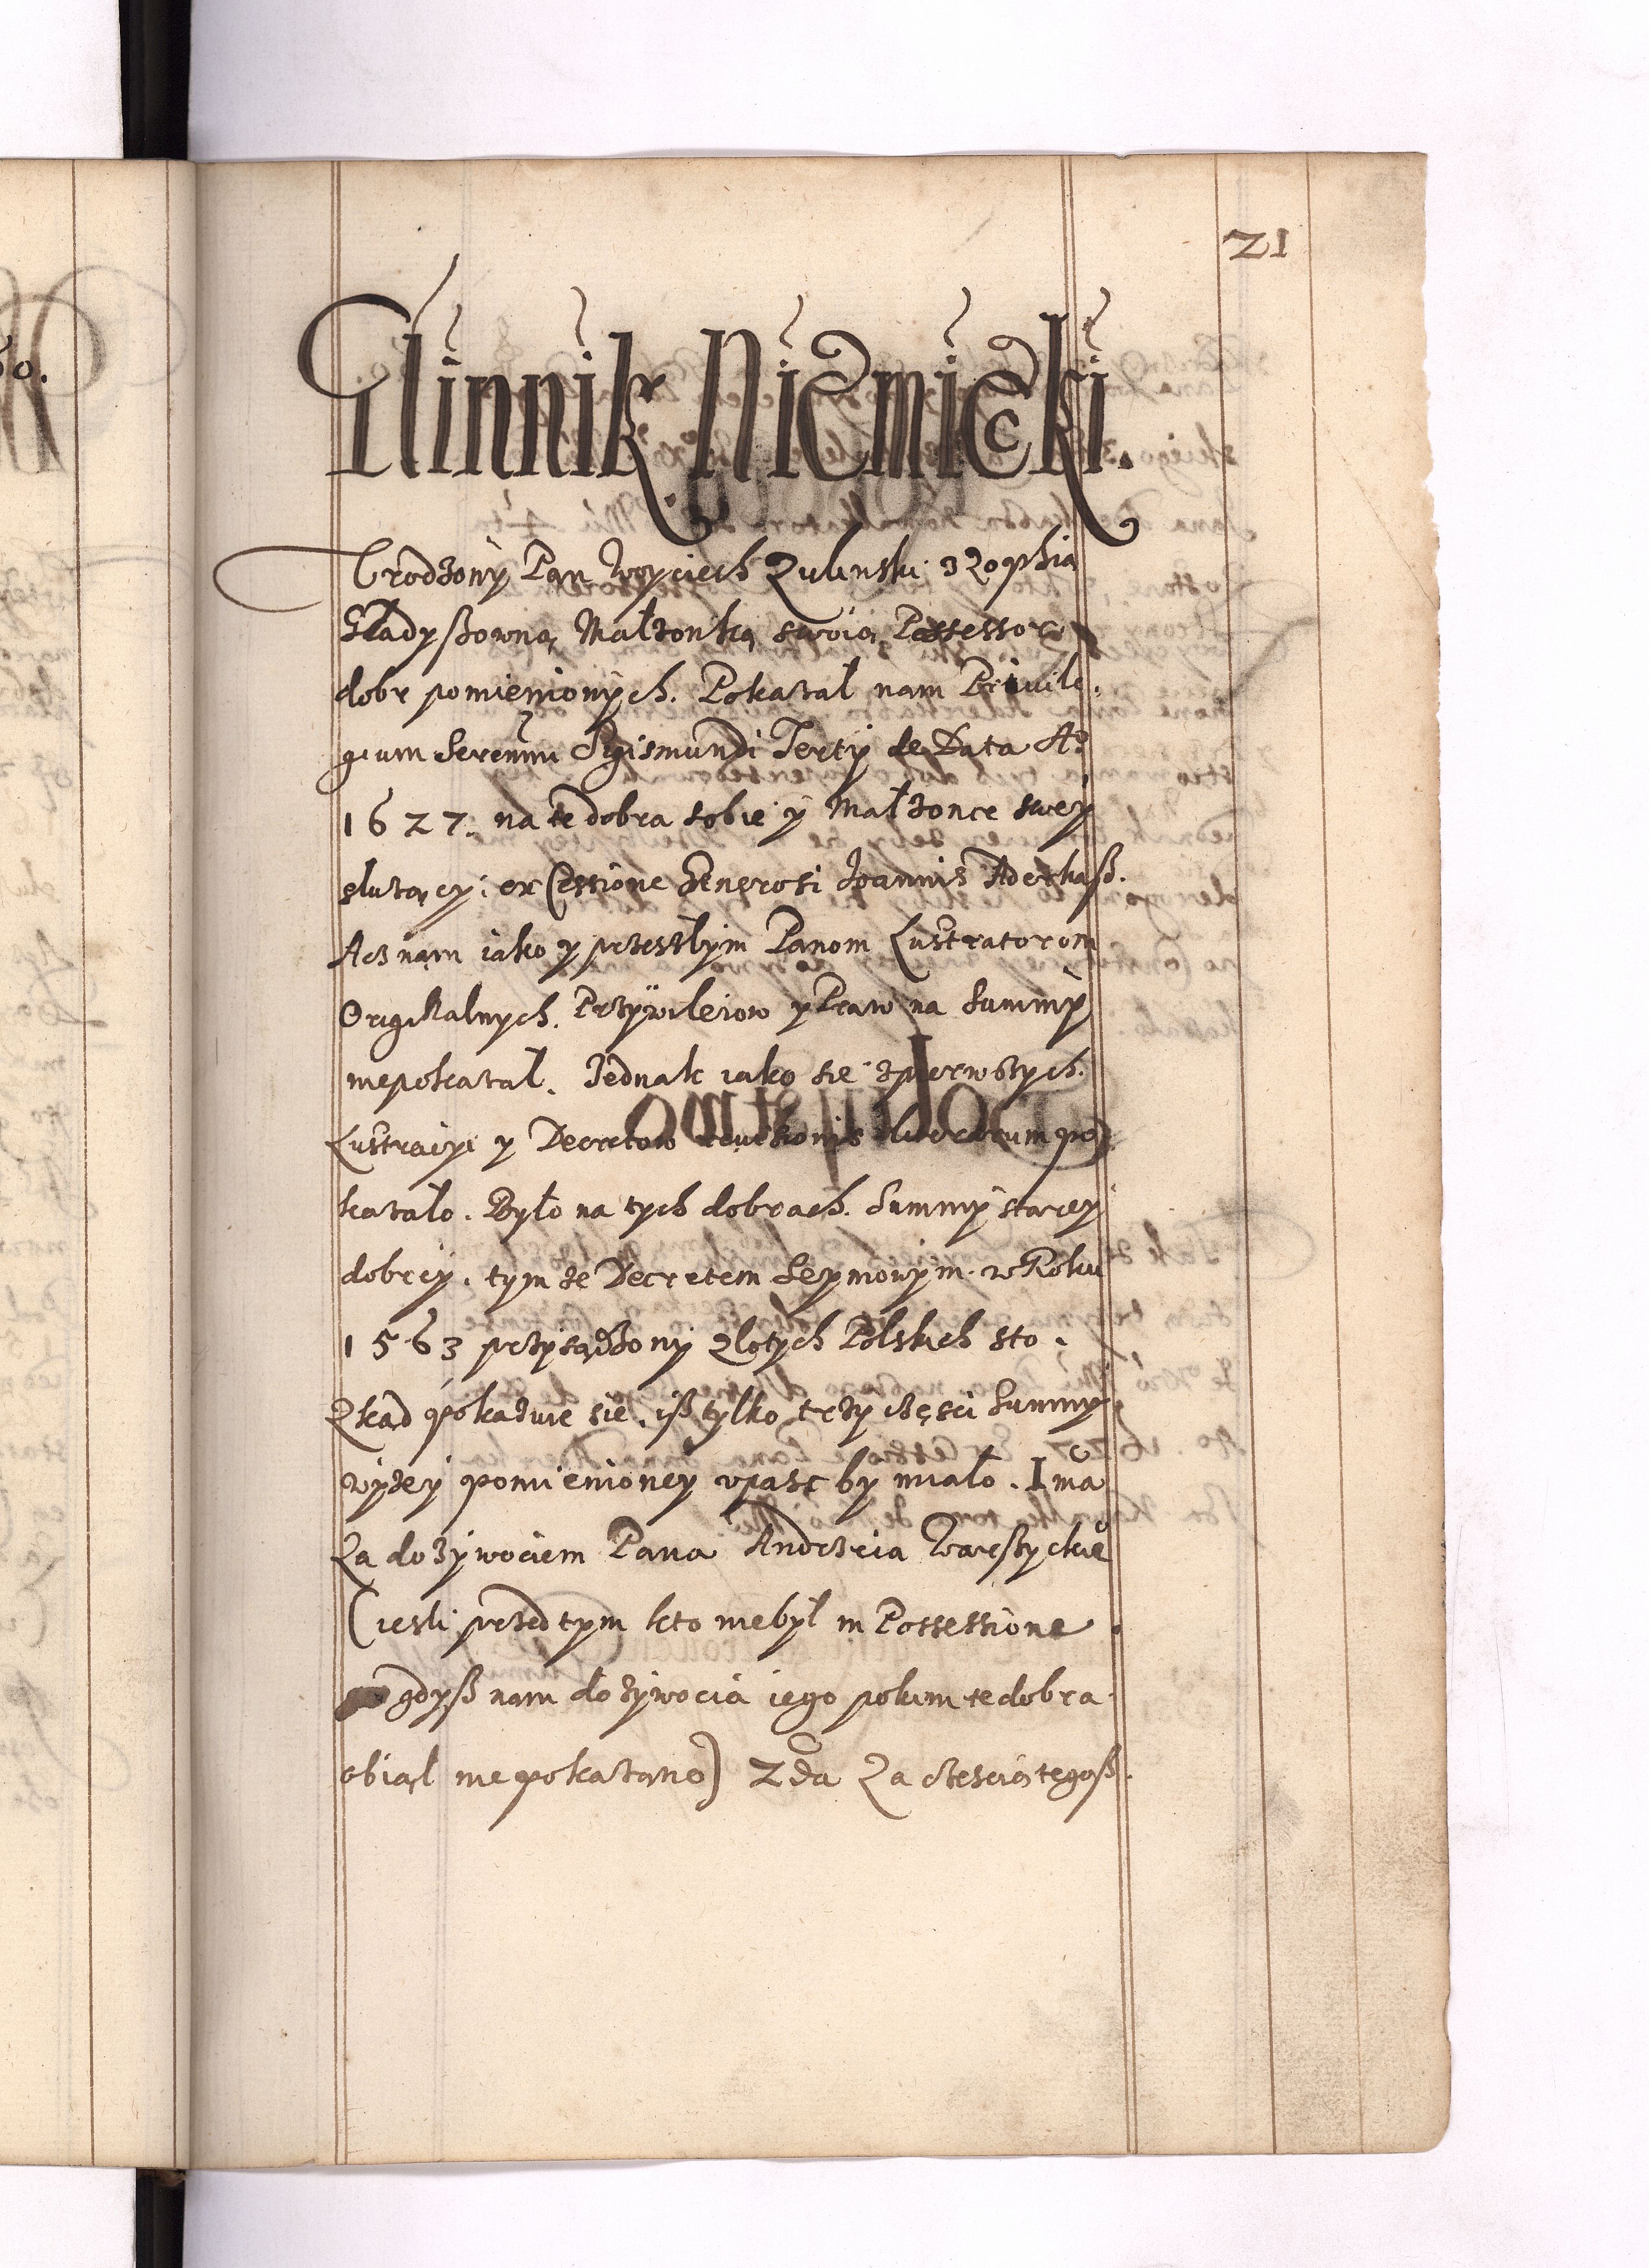 21
Młinnik Niemiecki.
Urodzony Pan Woyciech Zulinski z Zophią
Gładyszowną Małżonką swoią Possessor
dobr pomienionych. Pokazał nam Privile-
gium Serenmi Sigismundi Tertÿ de Data Aº
1627. na te dobra sobie y Małżonce swey
służący. ex Cessione Generosi Joannis Aderkasz.
Acz nam iako y przeszłym Panom Lustratorom
Originalnych Przywileiow y Praw na Summy
niepokazal. Jednak iako sie z pierwszych
Lustracyi y Decretow revisionis literarum po
kazało. Było na tych dobrach Summy starey
dobrey. tym ze Decretem Seymowym w Roku
1563 przysądzony Złotych Polskich sto.
Zkąd pokazuie sie, isz tylko trzy części Summy
wyzey pomienioney upaśc by miało. I ma
Za dozywociem Pana Andrzeia Warszyckiego
(iesli przed tym kto niebył in Possessione
gdysz nam dożywocia iego pokim te dobra
obiął nie pokazano) Zda Za częscią tegosz